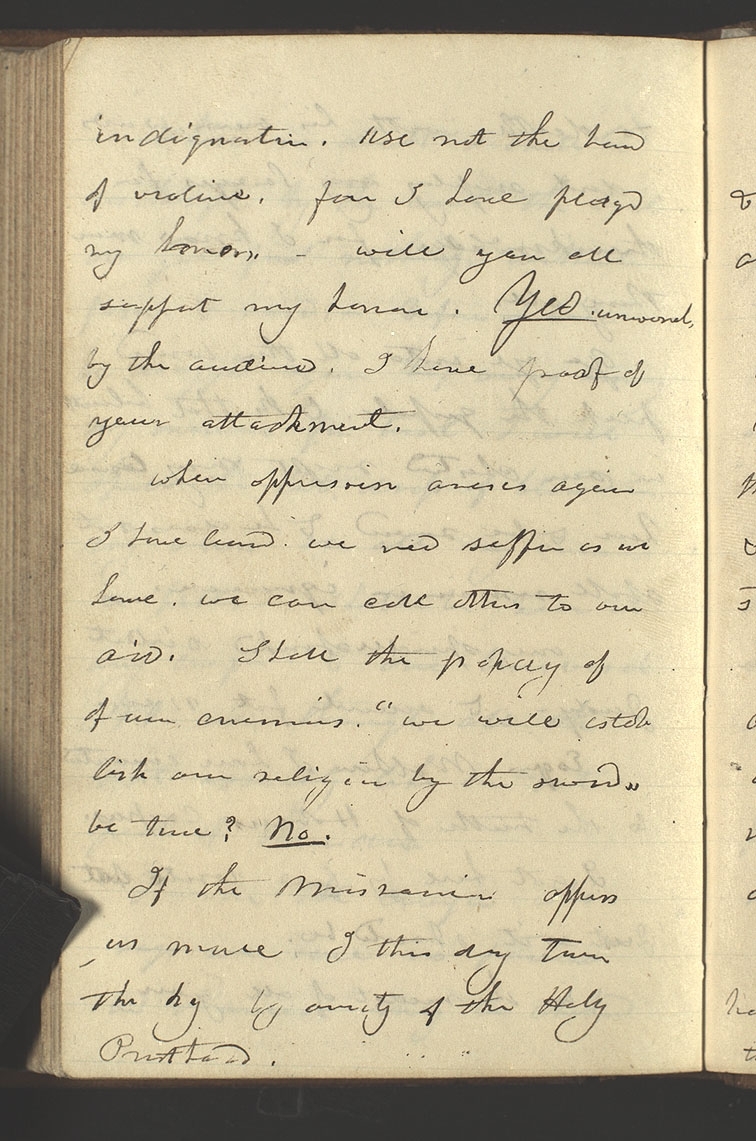 indignation. use not the hand
of violence. for I have pleagd
my honor. - will you all
support my honor. Yes. 
by the audience. I have proof of
your attachment.
when oppression arises again
I have heard. we need suffer as we
have. we can call others to our
aid. Shall the prophcy of
of our enemies. "we will estab
lish our religion by the sword"
be true? No.
If the Missourian oppress
us more I this day turn
the key by  of the Holy
Priesthood.